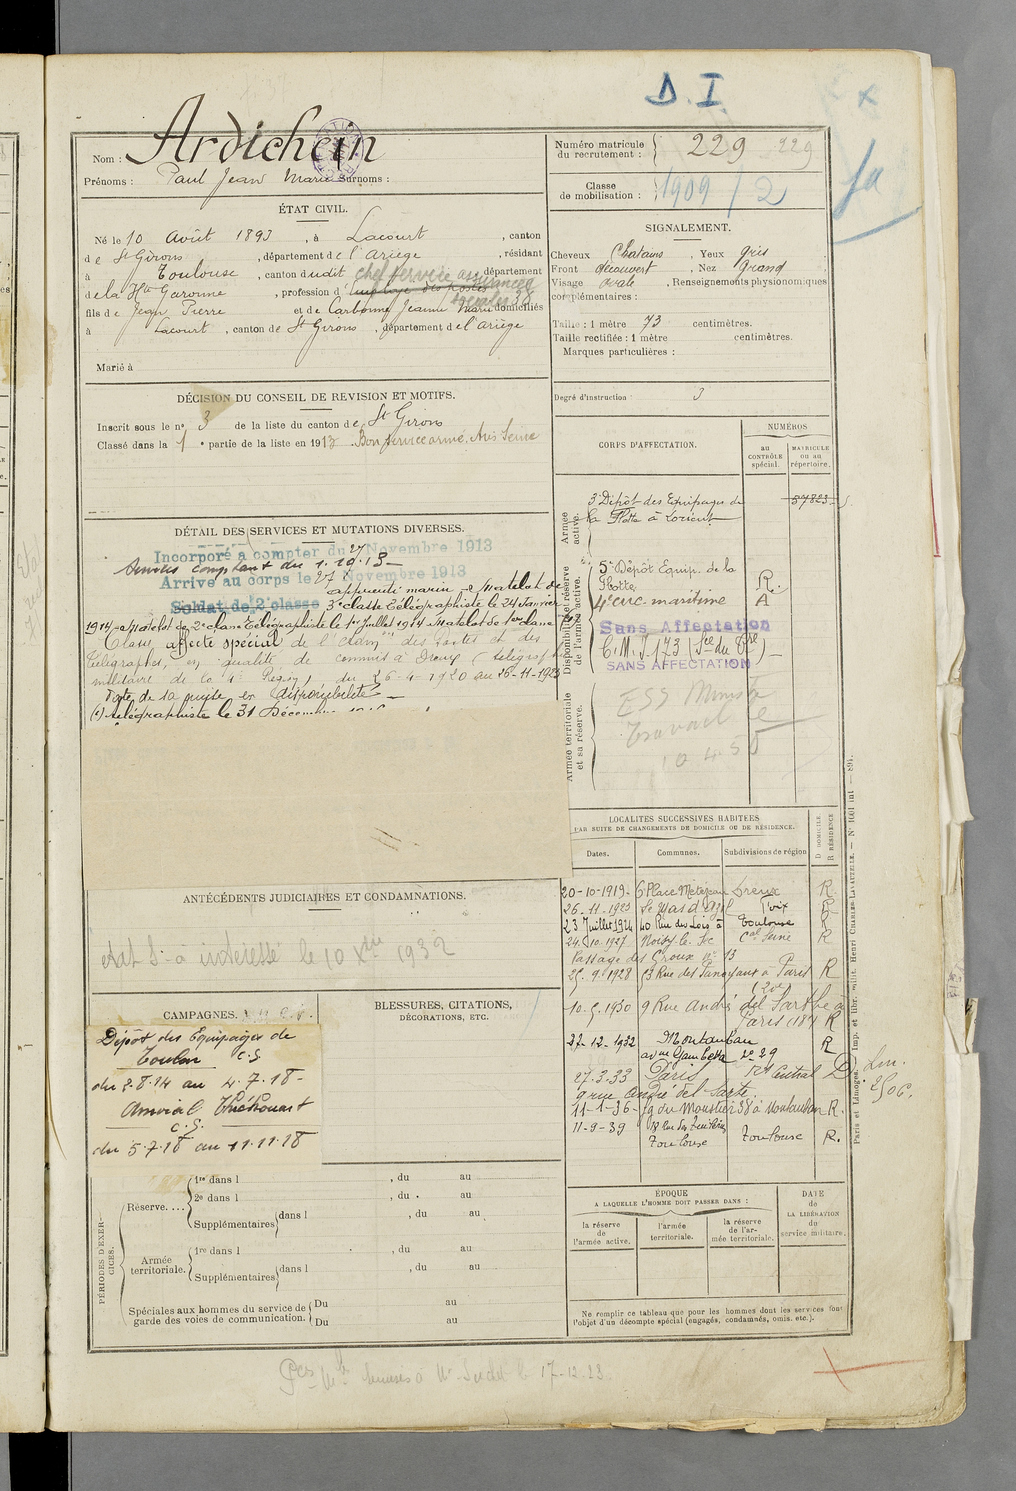 D. I.
Nom : Ardichen
Prénoms : Paul Jean Marie Surnoms :
Numéro matricule du recrutement : 229 229
Classe de mobilisation : 1909 / 2
ÉTAT CIVIL.
Né le 10 Août 1893, à Lacourt, canton
de St Girons, département de l'ariège, résidant
à Toulouse, canton dudit, département
chef service assurances sociales 38
de la Hte Garonne, profession d'employé des postes
fils de Jean Pierre et de Carbonne Jeanne Marie domiciliés
à Lacourt, canton de St Girons, département de l'ariège
Marié à
SIGNALEMENT.
Cheveux Chatains, Yeux gris
Front découvert, Nez grand
Visage ovale, Renseignements physionomiques
complémentaires :
Taille : 1 mètre 73 centimètres.
Taille rectifiée : 1 mètre centimètres.
Marques particulières :
Degré d'instruction : 3
DÉCISION DU CONSEIL DE REVISION ET MOTIFS.
Inscrit sous le n° 3 de la liste du canton de St Girons
Classé dans la 1e partie de la liste en 1913 Bon service armé, Avis Seine
CORPS D'AFFECTATION.
NUMÉROS
au CONTRÔLE spécial.
MATRICULE ou au répertoire.
Armée active.
3e Dépôt des Equipages de
la Flotte à Lorient
57823
Disponibilité et réserve de l'armée active.
5e Dépôt Equip. de la
Flotte R.
4e arr. maritime A
Sans Affectation
C.M.I. 173
SANS AFFECTATION
Armée territoriale et sa réserve.
ESS Ministre
Travail
DÉTAIL DES SERVICES ET MUTATIONS DIVERSES.
Incorporé à compter du 27 Novembre 1913
Services comptant du 1.10.13
Arrivé au corps le 27 Novembre 1913
apprenti marin Matelot de
Soldat de 2e classe 3e classe télégraphiste le 24 Janvier
1914 Matelot de 2e classe Télégraphiste le 1er Juillet 1914 Matelot de 1ère classe
Classé affecté spécial de l'Admon des Postes et des
télégraphes, en qualité de commis à Dreux (télégraphie
militaire de la 4e Région) du 26-4-1920 au 26-11-1923
Date de sa passe en disponibilité
télégraphiste le 31 Décembre
LOCALITÉS SUCCESSIVES HABITÉES
PAR SUITE DE CHANGEMENTS DE DOMICILE OU DE RÉSIDENCE.
Dates. Communes. Subdivisions de région D DOMICILE R RÉSIDENCE
20-10-1919 6 Place Metezeau Dreux R
26-11-1923 Le Mas d'Azil Foix R
23 Juillet 1924 40 Rue des Lois à Toulouse R
24.10.1927 Noisy le Sec Cal Seine R
Passage des Groux n° 13
25.9.1928 Rue des Panoyaux à Paris R
(20e)
10.5.1930 9 Rue André del Sarthe à
Paris (18e) R
27-12-1932 Montauban R
avue Gambetta n° 29
27.3.33 Paris Rt Central D
9 rue André del Sarte
11-1-36 fg du Moustier 38 à Montauban R.
11-9-39 Toulouse Toulouse R.
ANTÉCÉDENTS JUDICIAIRES ET CONDAMNATIONS.
intéressé le 10 Xbre 1932
CAMPAGNES.
Dépôt des Equipages de
Toulon C.S
du 2.8.14 au 4.7.18
Amiral Tréhouart
C.S.
du 5.7.18 au 11.11.18
BLESSURES, CITATIONS,
DÉCORATIONS, ETC.
PÉRIODES D'EXERCICES.
Réserve.... 1re dans l , du au
2e dans l , du au
Supplémentaires dans l , du au
Armée territoriale. 1re dans l , du au
Supplémentaires dans l , du au
Spéciales aux hommes du service de garde des voies de communication. Du au
Du au
ÉPOQUE
A LAQUELLE L'HOMME DOIT PASSER DANS :
la réserve de l'armée active.
l'armée territoriale.
la réserve de l'armée territoriale.
DATE de LA LIBÉRATION du service militaire.
Ne remplir ce tableau que pour les hommes dont les services font
l'objet d'un décompte spécial (engagés, condamnés, omis, etc.).
Paris et Limoges. — Imp. et libr. milit. Henri CHARLES-LAVAUZELLE.
le 17-12-23